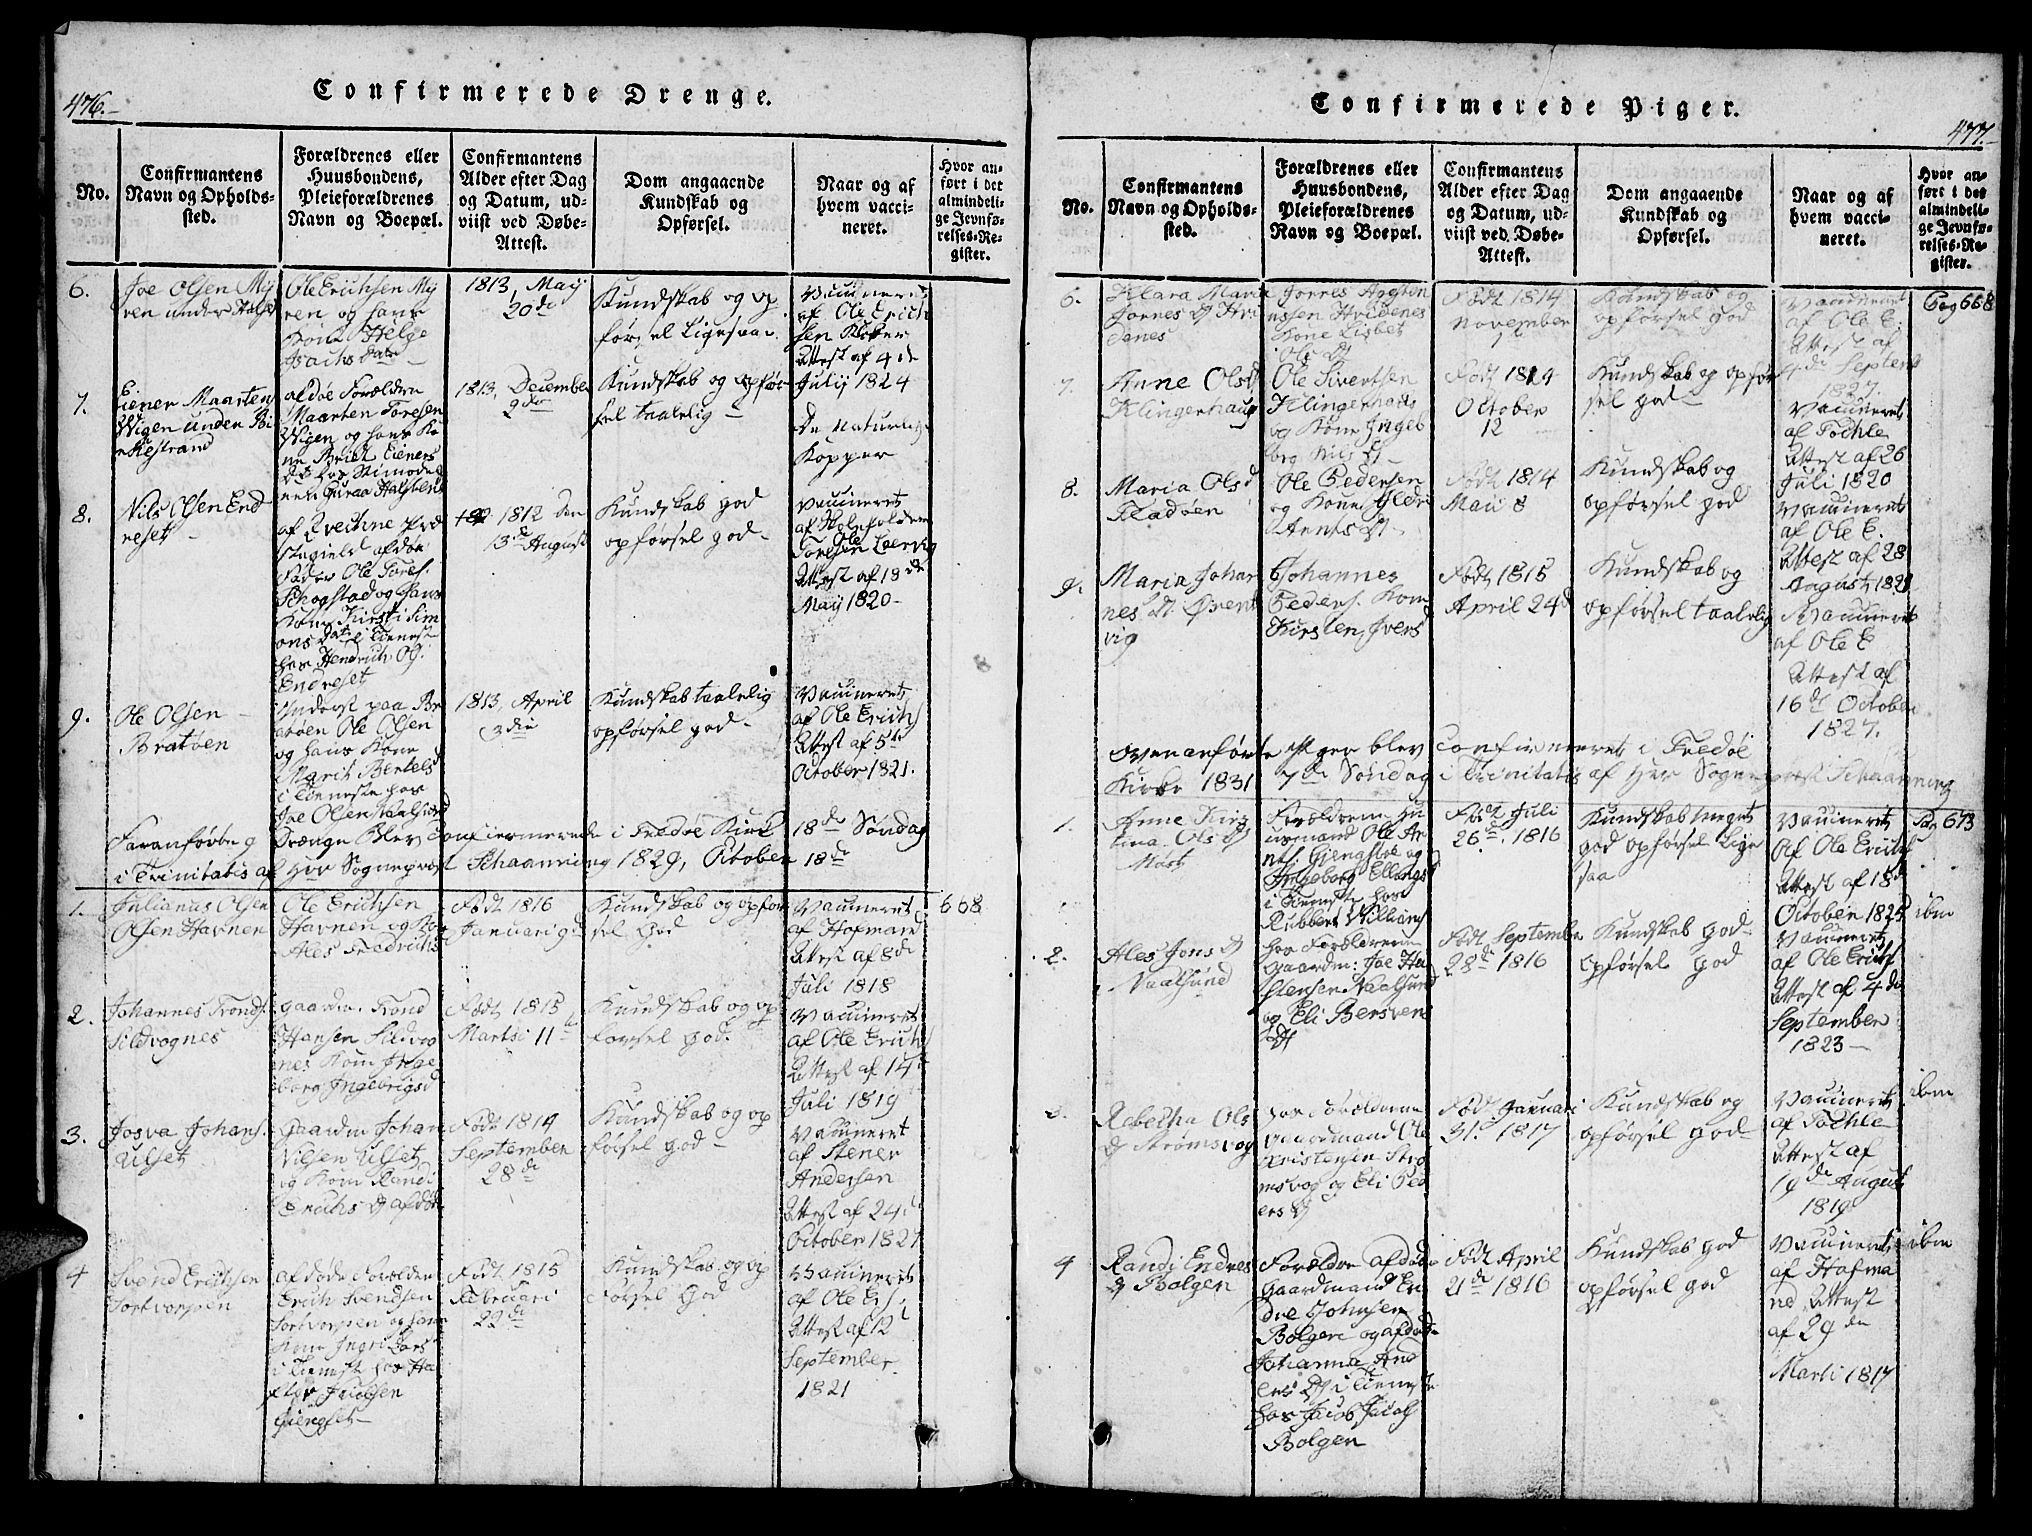 476.
Confirmerede Drenge.
No.
Confirmantens
Navn og Opholds-
sted.
Forældrenes eller
Huusbondens,
Pleieforældrenes
Navn og Boepæl.
Confirmantens
Alder efter Dag
og Datum, ud-
viist ved Døbe-
Attest.
Dom angaaende
Kundskab og
Opførsel.
Naar og af
hvem vacci-
neret.
Hvor an-
ført i det
almindeli-
ge Jevnfø-
relses-Re-
gister.
6.
Joe Olsen My
ren under
Ole Erichsen My
ren og hans
Kone Helge
1813, May
20de
Kundskab og op
førsel Ligesaa
Vaccineret
af Ole Erich
sen
Attest af 4de
Julij 1824
7.
Einer Maartens
Wigen under Bi
rkestrand
afdøe Forælder
Maarten Toresen
Wigen og hans Ko
ne Brit Einers
1813, December
2den
Kundskab og opfør
sel taalelig
De Naturlig
Kopper
8.
Nils Olsen End
reset
af Qvechne Præ
stegield afdøe
Fader Ole Tores.
Skogstad og hans
Kone Kirsti Sim
ons Datr i Tieneste
hos Hendrich Ol.
Endreset
1812 den
13de August
Kundskab god
opførsel god
Vaccineret
af
Ole
Toresen Leervig
Attest af 18de
May 1820
9.
Ole Olsen
Bratøen
Inderst paa Br
atøen Ole Olsen
og hans Kone
Marit Bertels
i Tieneste hos
Joe Olsen Vaalsund
1813, April
3die
Kundskab taalelig
opførsel god
Vaccineret
af Ole Erichs
Attest af 5te
October 1821.
Foranførte 9 Drænge Blev Confiermerede i Fredøe Kirk 18de Søndag
i Trinitatis af Her Sognepræst Schaanning 1829, October 18de
1.
Julianus Olsen
Olsen Havnen
Ole Erichsen
Havnen og Kon
Ales Fredrichs
Født 1816
Januari 9de
Kundskab og opfør
sel God
Vaccineret
af Hofmand
Attest af 8de
Juli 1818
668
2.
Johannes Tronds.
Sildvognes
gaardm. Trond
Hansen Sildvog
nes Kone Inge
borg Ingebrigsd
Født 1815
Martsi 11te
Kundskab og op
førsel god.
Vaccineret
af Ole Erichs
Attest af 14de
Juli 1819
3.
Josva Johans.
Ulset
Gaardm Johan
Nilsen Ulset
og Kone Randi
Erichs D afdøde
Født 1814
September
28de
Kundskab og op
førsel god
Vaccineret
af Stener
Andersen
Attest af 24de
October 1821
4
Svend Erichsen
Sortvorpen
afdøde Forælder
Erich Svendsen
Sortvorpen og hans
Kone Ingri Lars
i Tienest hos Ha
Giengset
Født 1815
Februari
22de
Kundskab og op
førsel God
Vaccineret
af Ole Er.
Attest af 12
September
1821
477.
Confirmerede Piger.
No.
Confirmantens
Navn og Opholds-
sted.
Forældrenes eller
Huusbondens,
Pleieforældrenes
Navn og Boepæl.
Confirmantens
Alder efter Dag
og Datum, ud-
viist ved Døbe-
Attest.
Dom angaaende
Kundskab og
Opførsel.
Naar og af
hvem vacci-
neret.
Hvor an-
ført i det
almindeli-
ge Jevnfø-
relses-Re-
gister.
6.
Klara Maria
Jørnes D
denes
Kone Lisbet
Ols D
Født 1814
November
Kundskab og
opførsel god
Vaccineret
af Ole E.
Attest af
4de Septem
1827
Pag 668
7.
Anne Olsd
Klingerhaug
Ole Sivertsen
Klingerhaug
og Kone Ingeb
org Nils D
Født 1814
October
12
Kundskab og opfør
sel god
Vaccineret
af Tochle
Attest af 26
Juli 1820
8.
Maria Olsd
Fladøen
Ole Pedersen
og Kone Gldri
Arnts D
Født 1814
Maii 8
Kundskab og
opførsel god
Vaccineret
af Ole E.
Attest af 28
August 1821
9.
Maria Johan
nes D Ørent
vig
Johannes
Peders. Kone
Kirsten Ivers
Født 1815
April 24d
Kundskab og
opførsel taalelig
Vaccineret
af Ole E
Attest af
16de October
1827.
Ovenanførte Piger blev Confirmeret i Fredøe
Kirke 1831 7de Søndag i Trinitatis af Her Sognepræst Schaanning
1.
Anne Kirs
tina Ols D
Forældrene Hu
usmand Ole Ar
nts. Giengstøe og
Ingeborg Ellings
i Tieneste hos
Født Juli
26de 1816
Kundskab meget
god opførsel Lige
saa
Vaccineret
Af Ole Erichs
Attest af 18de
October 1825
Pag 673
2.
Ales Jons D
Vaalsund
hos Forældrene
gaardm: Joe Ha
stensen Vaalsund
og Eli Bersven
Født September
28de 1816
Kundskab god
opførsel god
Vaccineret
af Ole Erichs
Attest af 4de
September
1823
ibm
3.
Rebecha Ols
D Strømsvog
hos Forældrene
gaardmand Ole
Kristensen Strø
msvog og Eli Ped
ers D
Født Januari
31. 1817
Kundskab og
opførsel god
Vaccineret
af Tochle
Attest af
19de August
1819
ibm
4
Randi Endres
D Bolgen
Forældre afdøde
Gaardmand En
dre Johnsen
Bolgen og afdøde
Johanna And
ers D i Tieneste
hos Jacob Jacobs
Bolgen
Født April
21de 1816
Kundskab god
opførsel god
Vaccineret
af Hofma
nd, Attest
af 29de
Marti 1817
ibm